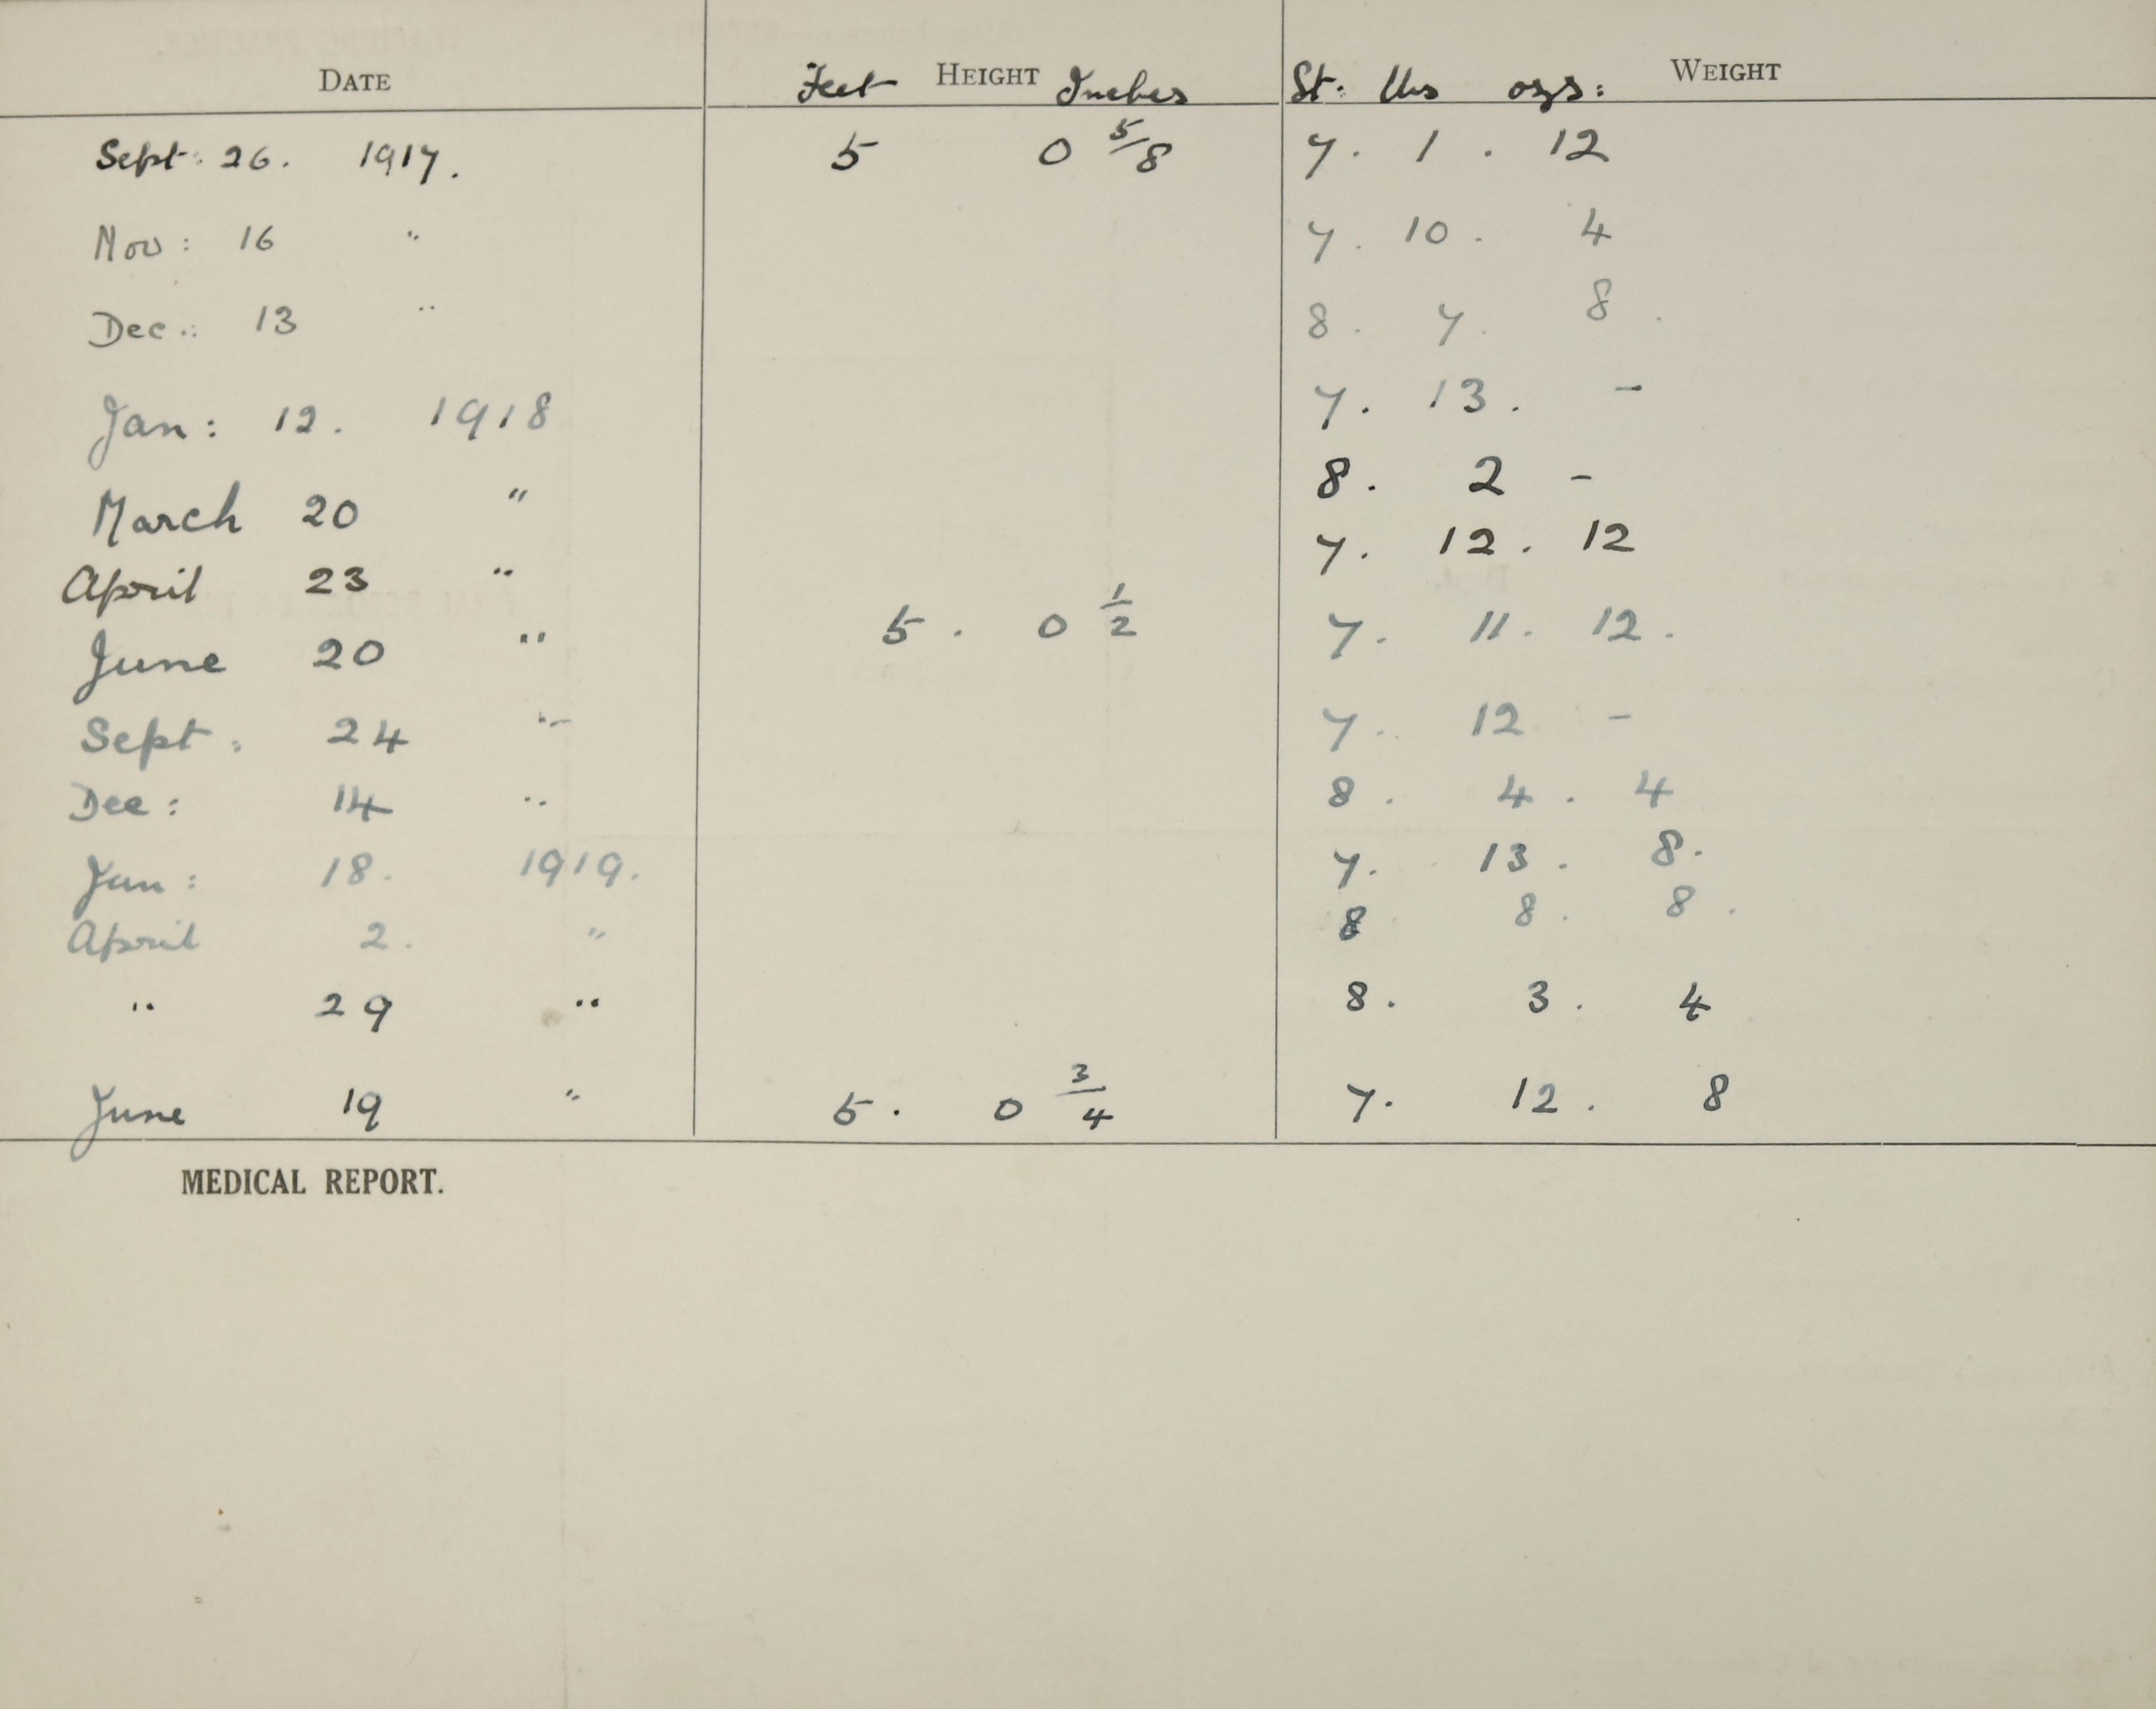 DATE Feet HEIGHT Inches St. lbs ozs: WEIGHT
Sept: 26. 1917. 5 0 5/8 7. 1. 12
Nov: 16 " 7. 10. 4
Dec: 13 " 8. 7. 8.
Jan: 12. 1918 7. 13. -
March 20 " 8. 2 -
April 23 " 7. 12. 12
June 20 " 5. 0 1/2 7. 11. 12.
Sept: 24 " 7. 12 -
Dec: 14 " 8. 4. 4
Jan: 18. 1919. 7. 13. 8.
April 2. " 8 8. 8.
" 29 " 8. 3. 4
June 19 " 5. 0 3/4 7. 12. 8
MEDICAL REPORT.